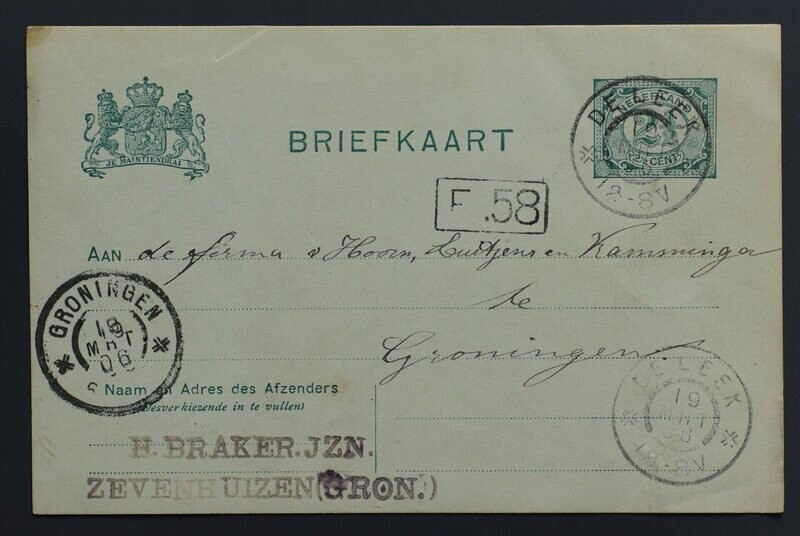 JE MAINTIENDRAI
BRIEFKAART
NEDERLAND
2½ CENT
DE LEEK
12-8V
F.58
AAN de firma v Hoorn, Luitjens en Kamminga
te
Groningen.
GRONINGEN
19
MRT
06
DE LEEK
19
MRT
06
12-8V
Naam en Adres des Afzenders
(desverkiezende in te vullen)
H. BRAKER.JZN.
ZEVENHUIZEN(GRON.)